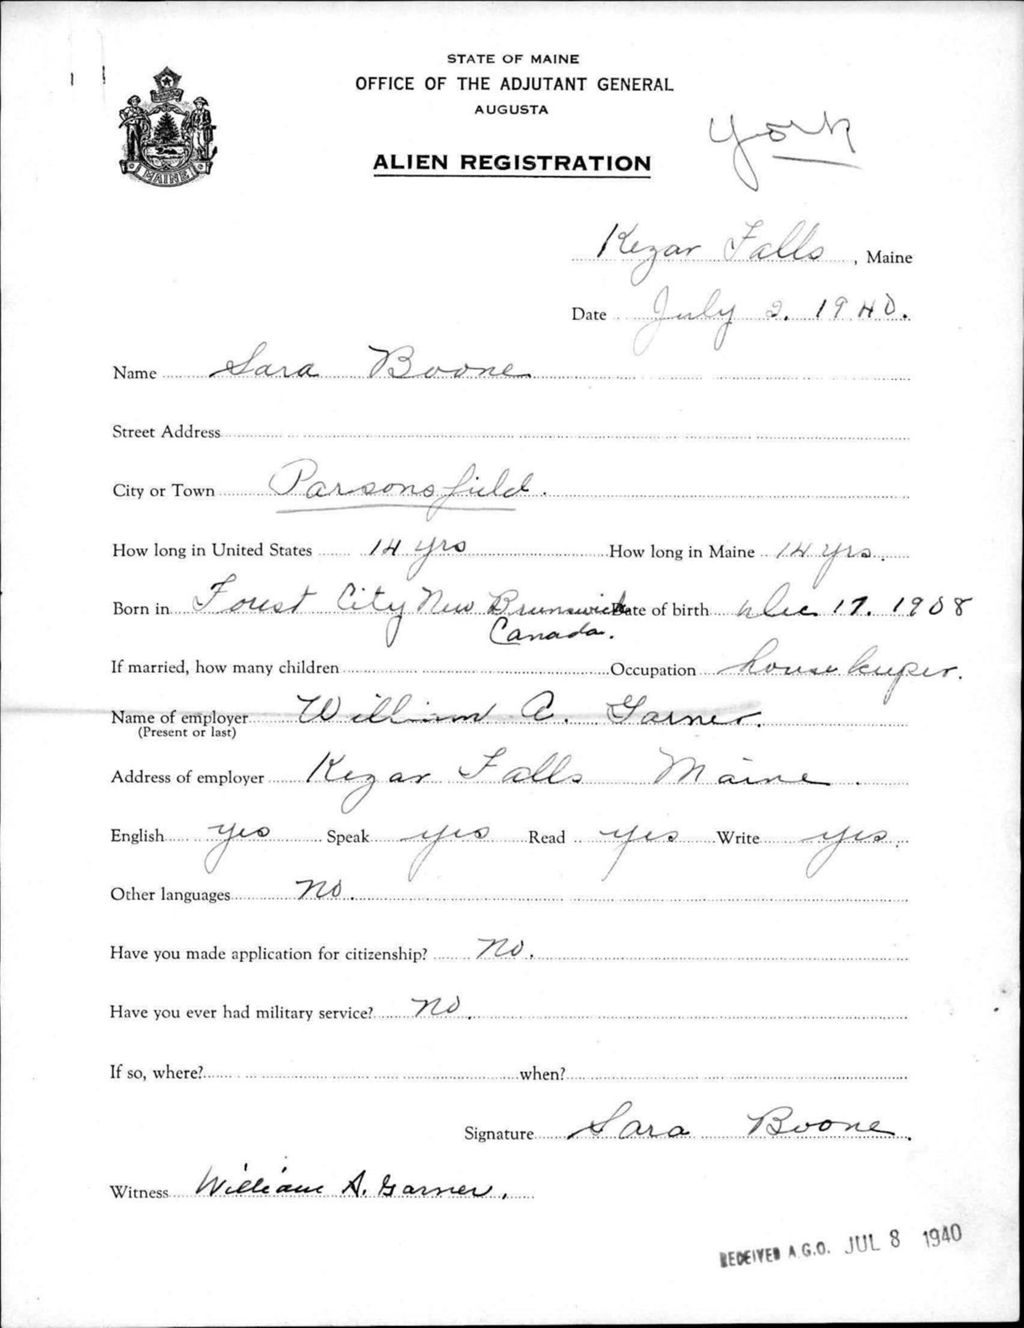 STATE OF MAINE
OFFICE OF THE ADJUTANT GENERAL
AUGUSTA
York
ALIEN REGISTRATION
MAINE
Kezar Falls, Maine
Date July 2. 1940.
Name Sara Boone
Street Address
City or Town Parsonsfield.
How long in United States 14 yrs How long in Maine 14 yrs.
Born in Forest City New Brunswick Date of birth Dec 17. 1908
Canada.
If married, how many children Occupation housekeeper.
Name of employer William A. Garner.
(Present or last)
Address of employer Kezar Falls Maine.
English yes Speak yes Read yes Write yes.
Other languages no.
Have you made application for citizenship? no.
Have you ever had military service? no.
If so, where? when?
Signature Sara Boone.
Witness William A. Garner.
RECEIVED A.G.O. JUL 8 1940